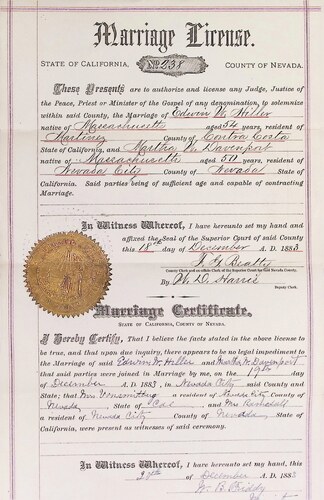 Marriage License.
STATE OF CALIFORNIA, No. 238 COUNTY OF NEVADA.
These Presents are to authorize and license any Judge, Justice
of the Peace, Priest or Minister of the Gospel of any denomination, to solemnize
within said County, the Marriage of Edwin W. Hiller
native of Massachusetts aged 54 years, resident of
Martinez County of Contra Costa
State of California, and Martha W. Davenport
native of Massachusetts aged 50 years, resident of
Nevada City County of Nevada State of
California. Said parties being of sufficient age and capable of contracting
Marriage.
In Witness Whereof, I have hereunto set my hand and
affixed the Seal of the Superior Court of said County
this 18th day of December A. D. 1883
J G Beatty
County Clerk and ex-officio Clerk of the Superior Court for said Nevada County.
By W. D. Harris
Deputy Clerk.
Marriage Certificate.
STATE OF CALIFORNIA, COUNTY OF NEVADA.
I Hereby Certify, That I believe the facts stated in the above license
to be true, and that upon due inquiry, there appears to be no legal impediment to the
Marriage of said Edwin W. Hiller and Martha W. Davenport
that said parties were joined in Marriage by me, on the 19th day
of December A. D. 1883, in Nevada City said County and
State; that Mrs a resident of Nevada City County of
Nevada, State of Cal and Mrs
a resident of Nevada City County of Nevada, State of
California, were present as witnesses of said ceremony.
In Witness Whereof, I have hereunto set my hand, this
20th day of December A. D. 1883